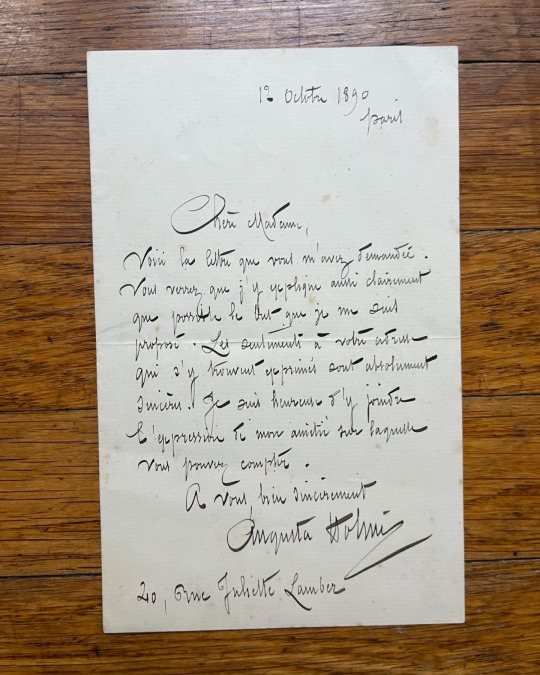 12 Octobre 1890
Paris
Chère Madame,
Voici la lettre que vous m'avez demandée.
Vous verrez que j'y explique aussi clairement
que possible le but que je me suis
proposé. Les sentiments à votre adresse
qui s'y trouvent exprimés sont absolument
sincères. Je suis heureuse d'y joindre
l'expression de mon amitié sur laquelle
vous pouvez compter.
A vous, bien sincèrement
Augusta Holmès
40, Rue Juliette Lamber